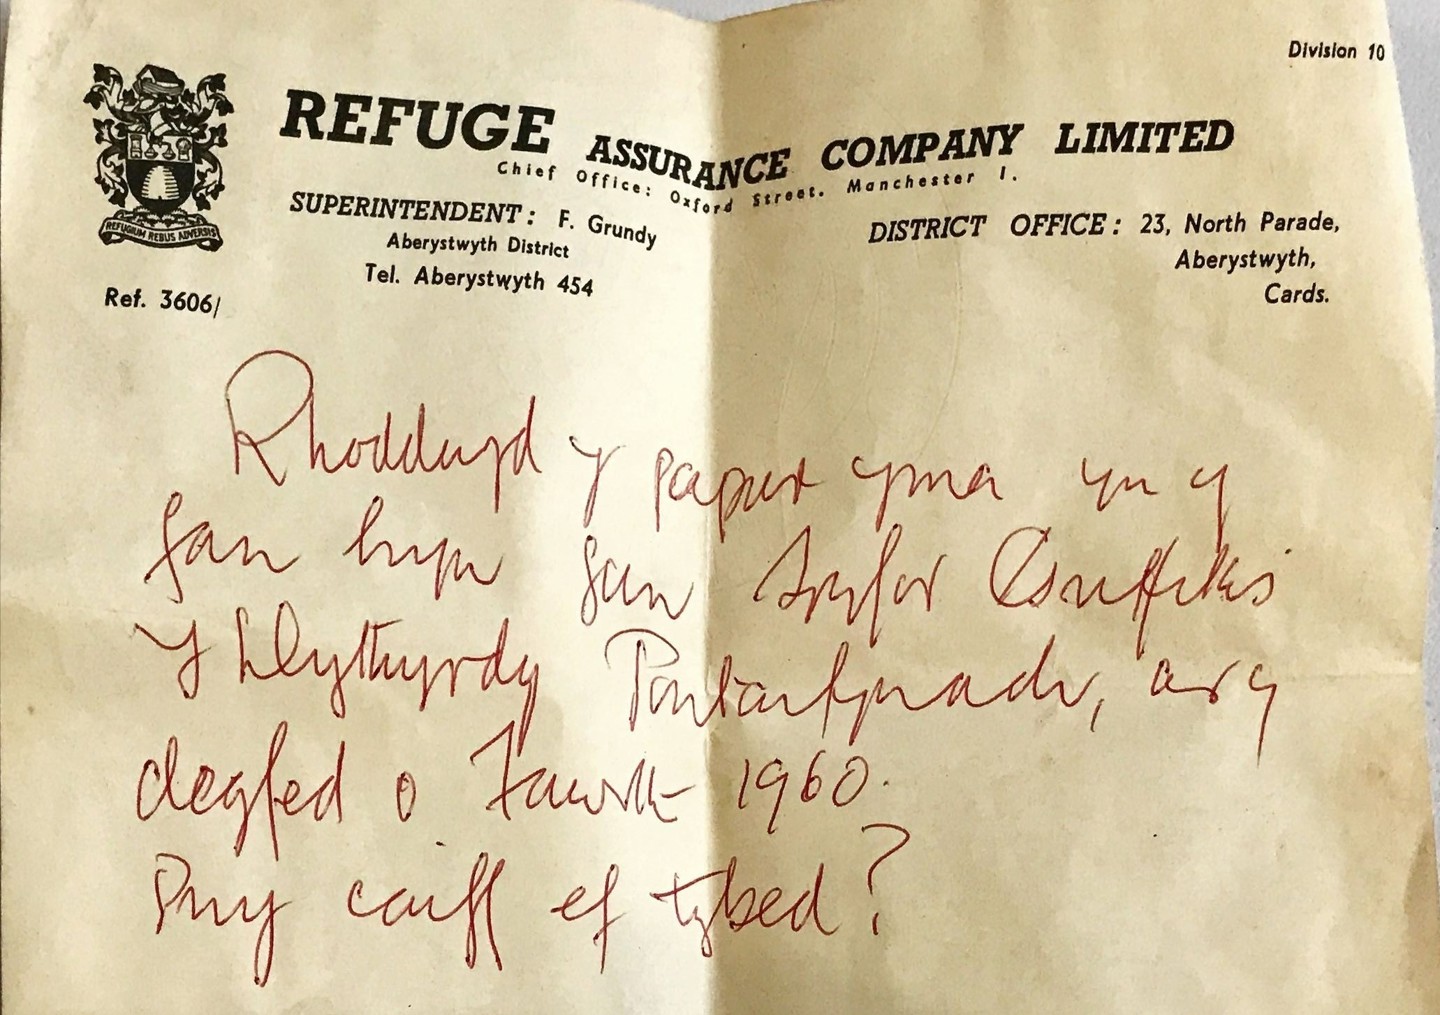 Division 10
REFUGE ASSURANCE COMPANY LIMITED
Chief Office: Oxford Street. Manchester 1.
SUPERINTENDENT: F. Grundy
Aberystwyth District
Tel. Aberystwyth 454
DISTRICT OFFICE: 23, North Parade,
Aberystwyth,
Cards.
REFUGIUM REBUS ADVERSIS
Ref. 3606/
Rhoddwyd y papur yma yn y
fan hyn gan Ifor Griffiths
Y Llythyrdy Pontarfynach, ar y
degfed o Fawrth 1960.
Pwy caiff ef tybed?